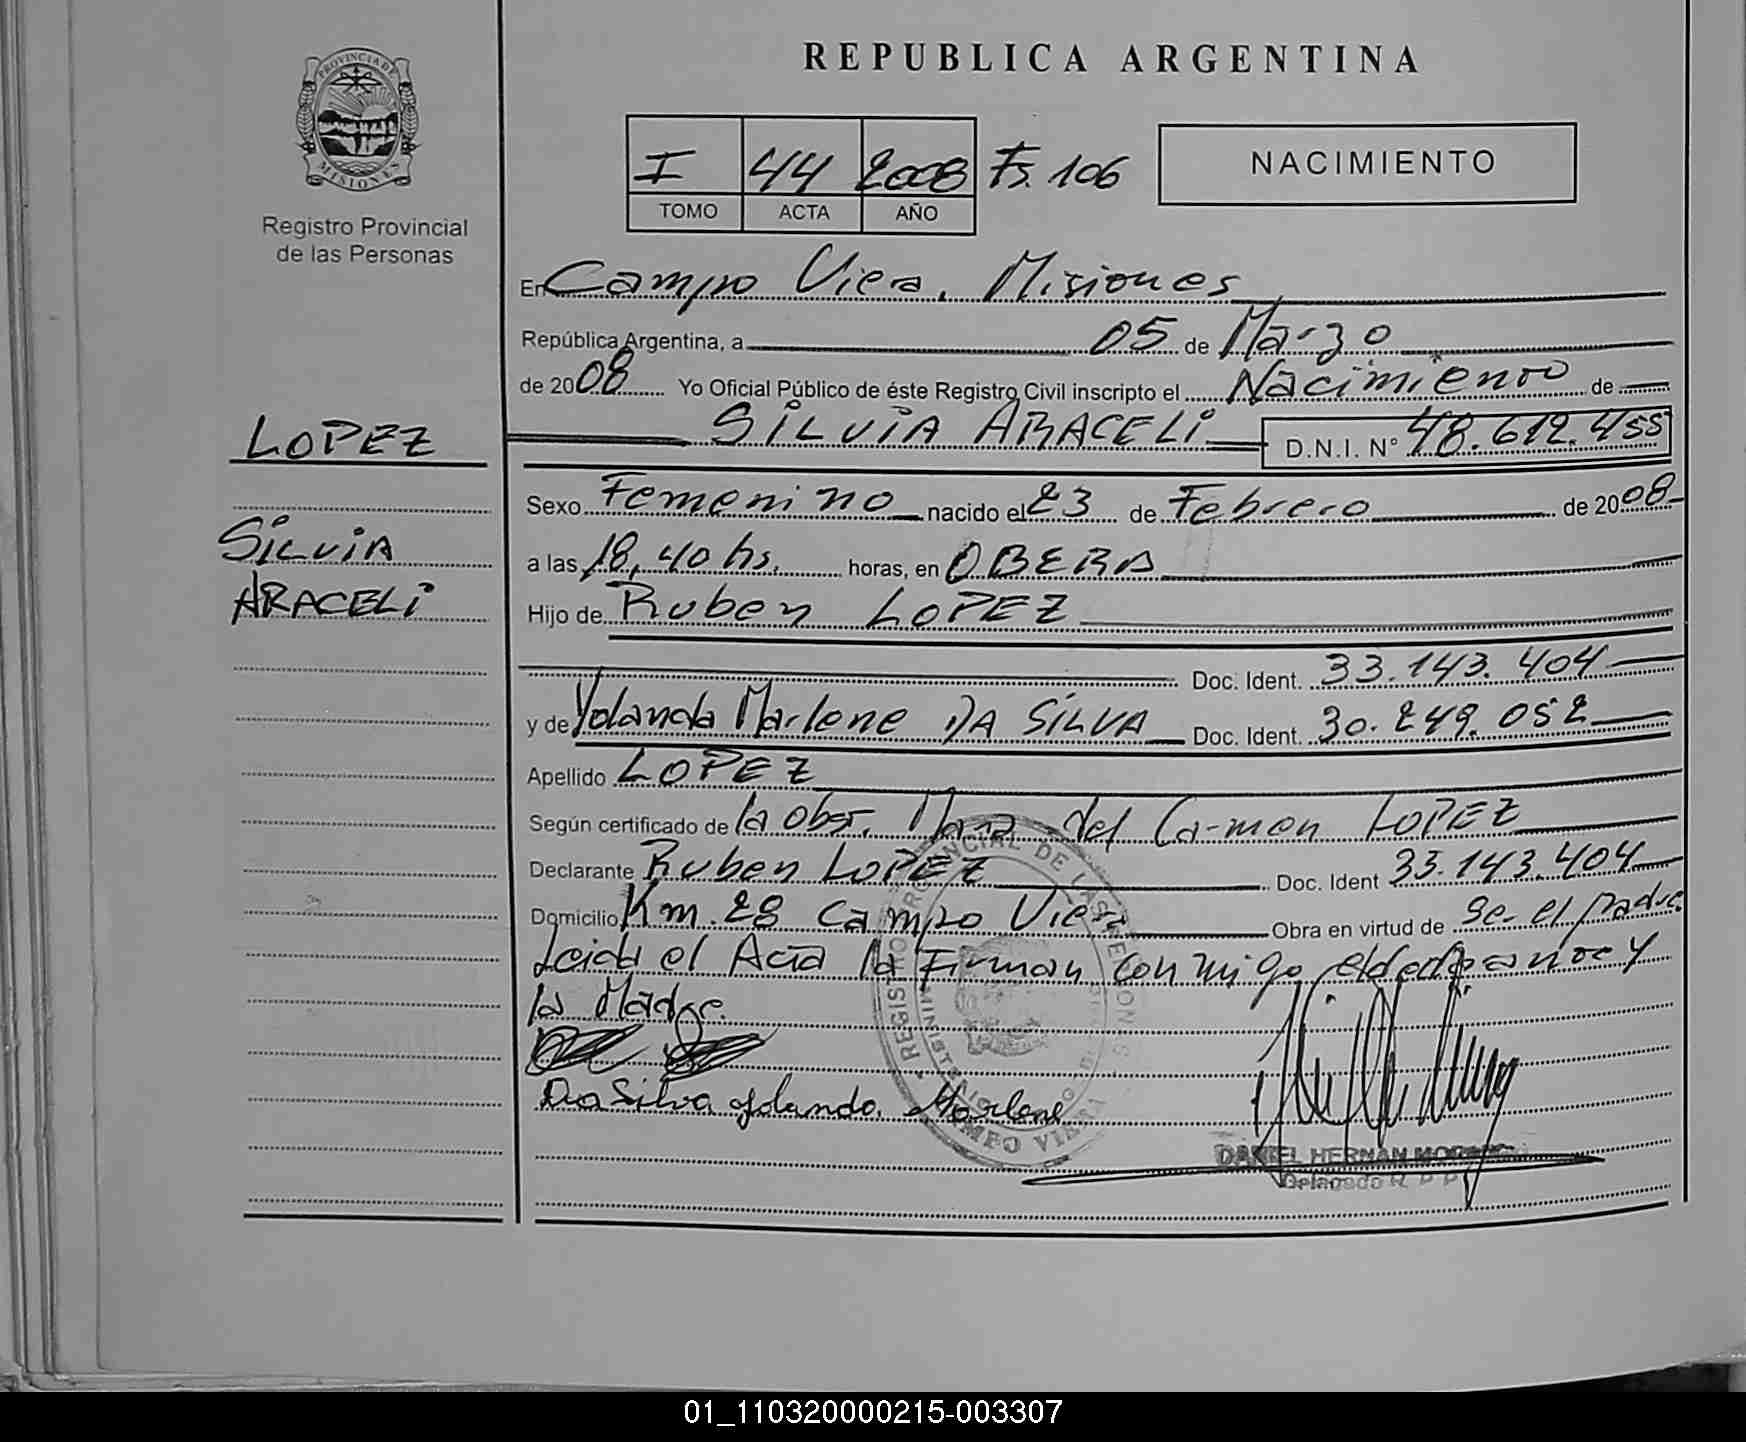 PROVINCIA DE
MISIONES
Registro Provincial
de las Personas
LOPEZ
SILVIA
ARACELI
REPUBLICA ARGENTINA
I 44 2008 Fs. 106
TOMO ACTA AÑO
NACIMIENTO
En Campo Viera, Misiones
República Argentina, a 05 de Marzo
de 2008 Yo Oficial Público de éste Registro Civil inscripto el Nacimiento de
SILVIA ARACELI D.N.I. N° 48.612.455
Sexo Femenino nacido el 23 de Febrero de 2008
a las 18,40 hs. horas, en OBERA
Hijo de Ruben LOPEZ
Doc. Ident. 33.143.404
y de Yolanda Marlene DA SILVA Doc. Ident. 30.249.052
Apellido LOPEZ
Según certificado de la Obst. Maria del Carmen LOPEZ
Declarante Ruben LOPEZ Doc. Ident 33.143.404
Domicilio Km. 28 Campo Viera Obra en virtud de Ser el padre
Leida el Acta la Firman conmigo el declarante y
la Madre.
Da Silva Yolanda Marlene
REGISTRO PROVINCIAL DE LAS PERSONAS
CAMPO VIERA
DANIEL HERNAN
Delegado R. P. P.
01_110320000215-003307